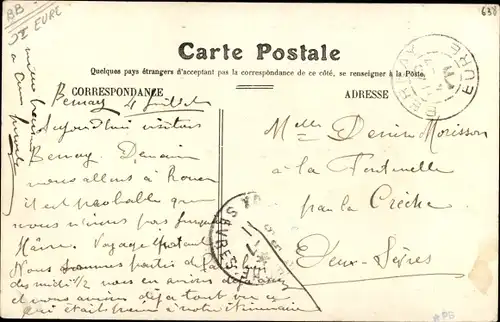 BB
EURE
638
Carte Postale
Quelques pays étrangers d'acceptant pas la correspondance de ce côté, se renseigner à la Poste.
CORRESPONDANCE
ADRESSE
Bernay 4 Juillet
Aujourd'hui visitons
Bernay. Demain
nous allons à Rouen
il est probable que
nous n'irons pas jusqu'
Hâvre. Voyage épatant
Nous sommes partis de
des midi ½ nous en avions
et nous avions déjà tout vu ce
qui était prévu à notre itinéraire
Melle Denise Morisson
à la Fontenelle
par la Crèche
Deux-Sèvres
BERNAY
EURE
SÈVRES